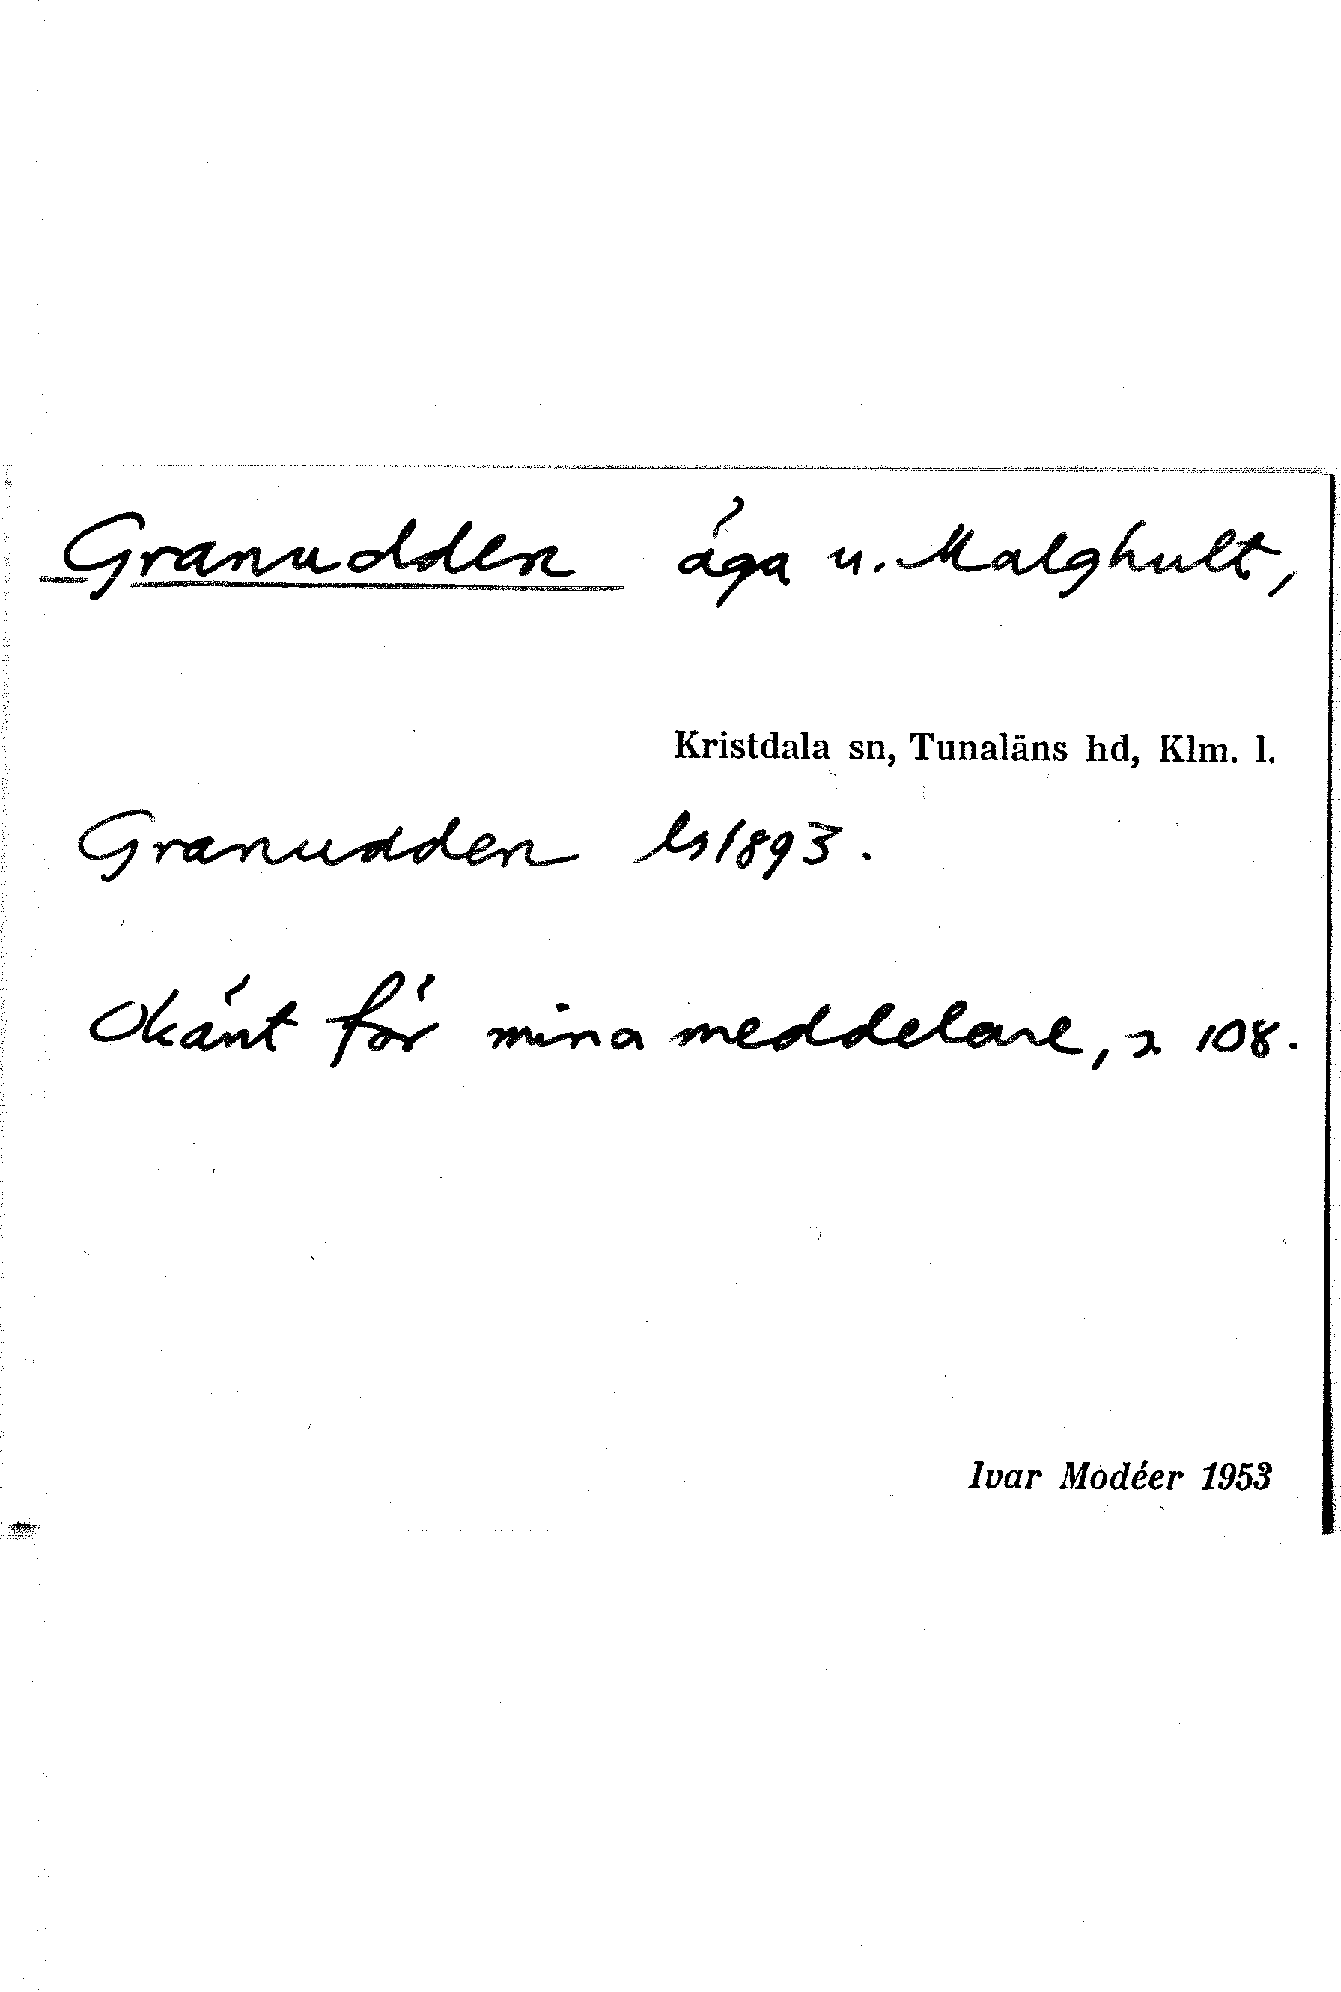 Granudden äga u. Malghult,
Kristdala sn, Tunaläns hd, Klm. l.
Granudden ls 1893.
Okänt för mina meddelare, 2 108.
Ivar Modéer 1953